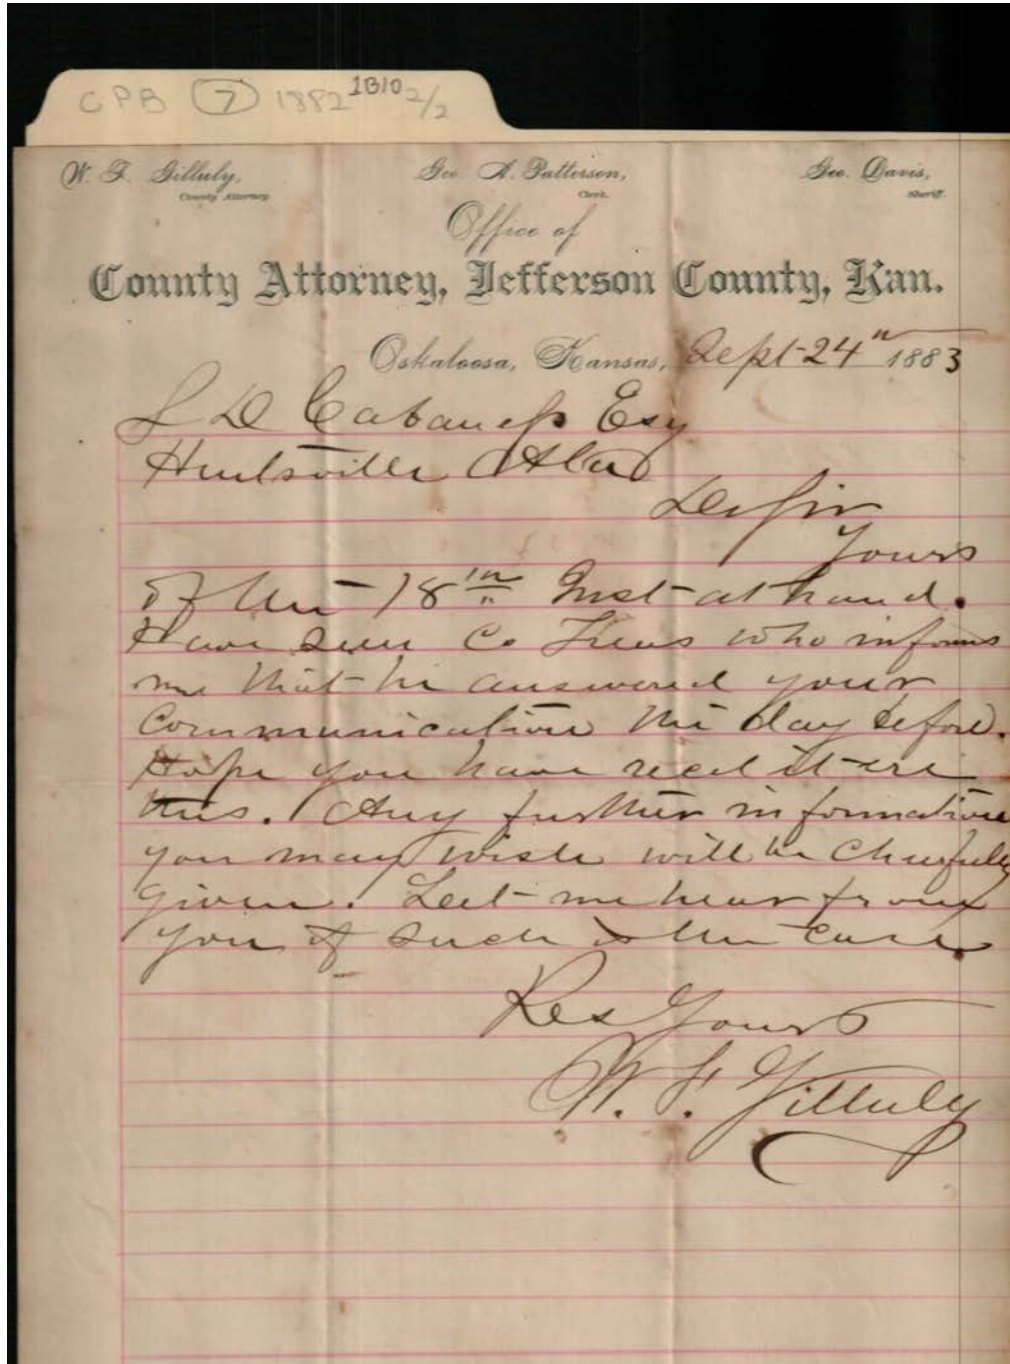 CPB 7 1882 1B10 2/2
W. F. Gilluly,
County Attorney
Geo. A. Patterson,
Clerk.
Geo. Davis,
Sheriff.
Office of
County Attorney, Jefferson County, Kan.
Oskaloosa, Kansas, Sept 24th 1883
S D Cabaness Esq
Huntsville Ala
De Sir
Yours
of the 18th Inst at hand.
Have seen Co Treas who informs
me that he answered your
communication the day before.
Hope you have recd it ere
this. Any further information
you may wish will be cheerfully
given. Let me hear from
you if such is the case.
Res Yours
W. F. Gilluly